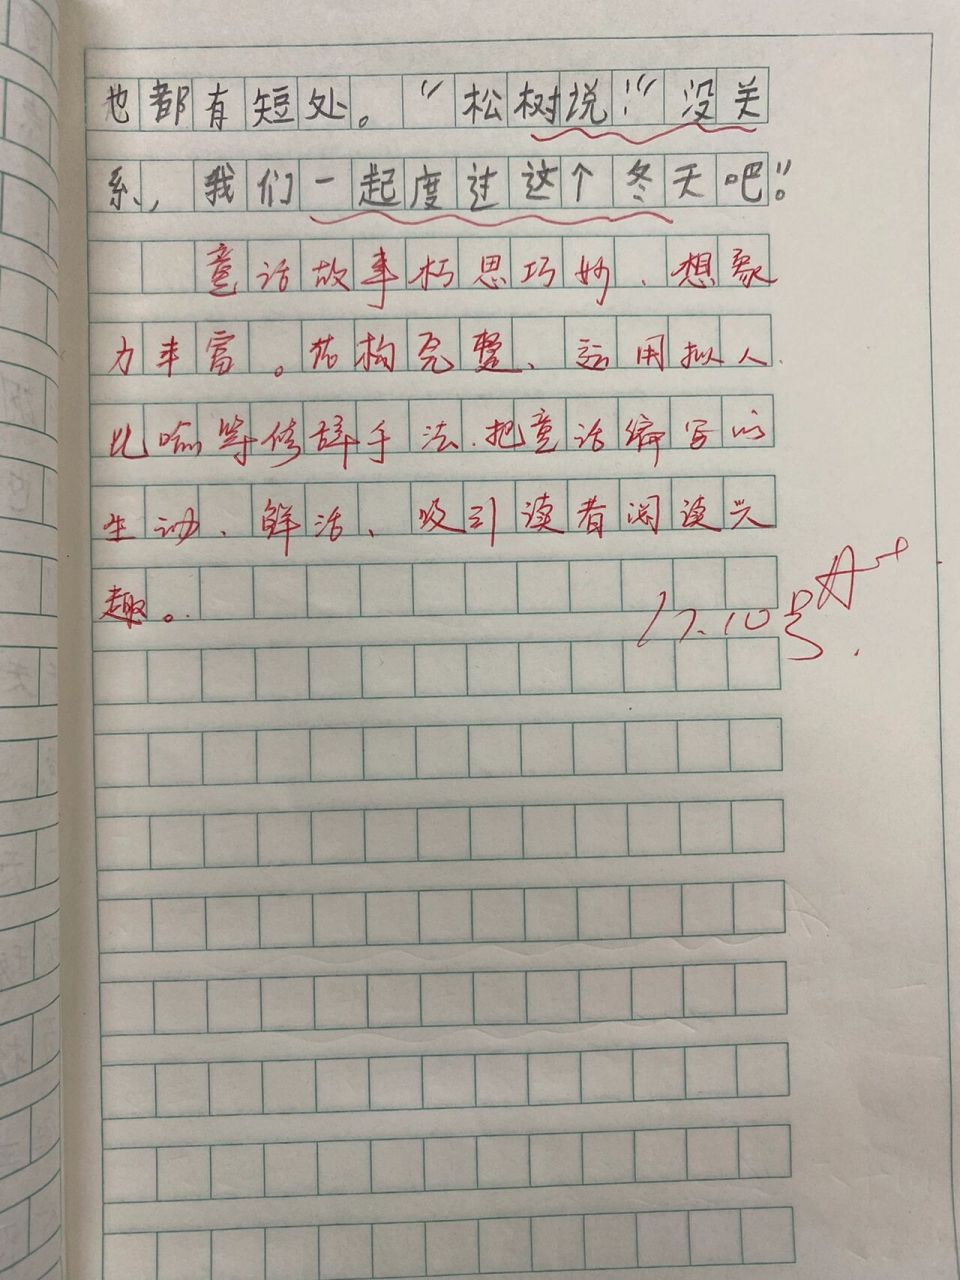 也都有短处。”松树说：“没关
系，我们一起度过这个冬天吧。”
童话故事构思巧妙、想象
力丰富。结构完整、运用拟人、
比喻等修辞手法.把童话编写的
生动、鲜活、吸引读者阅读兴
趣。
A+
12.10号.